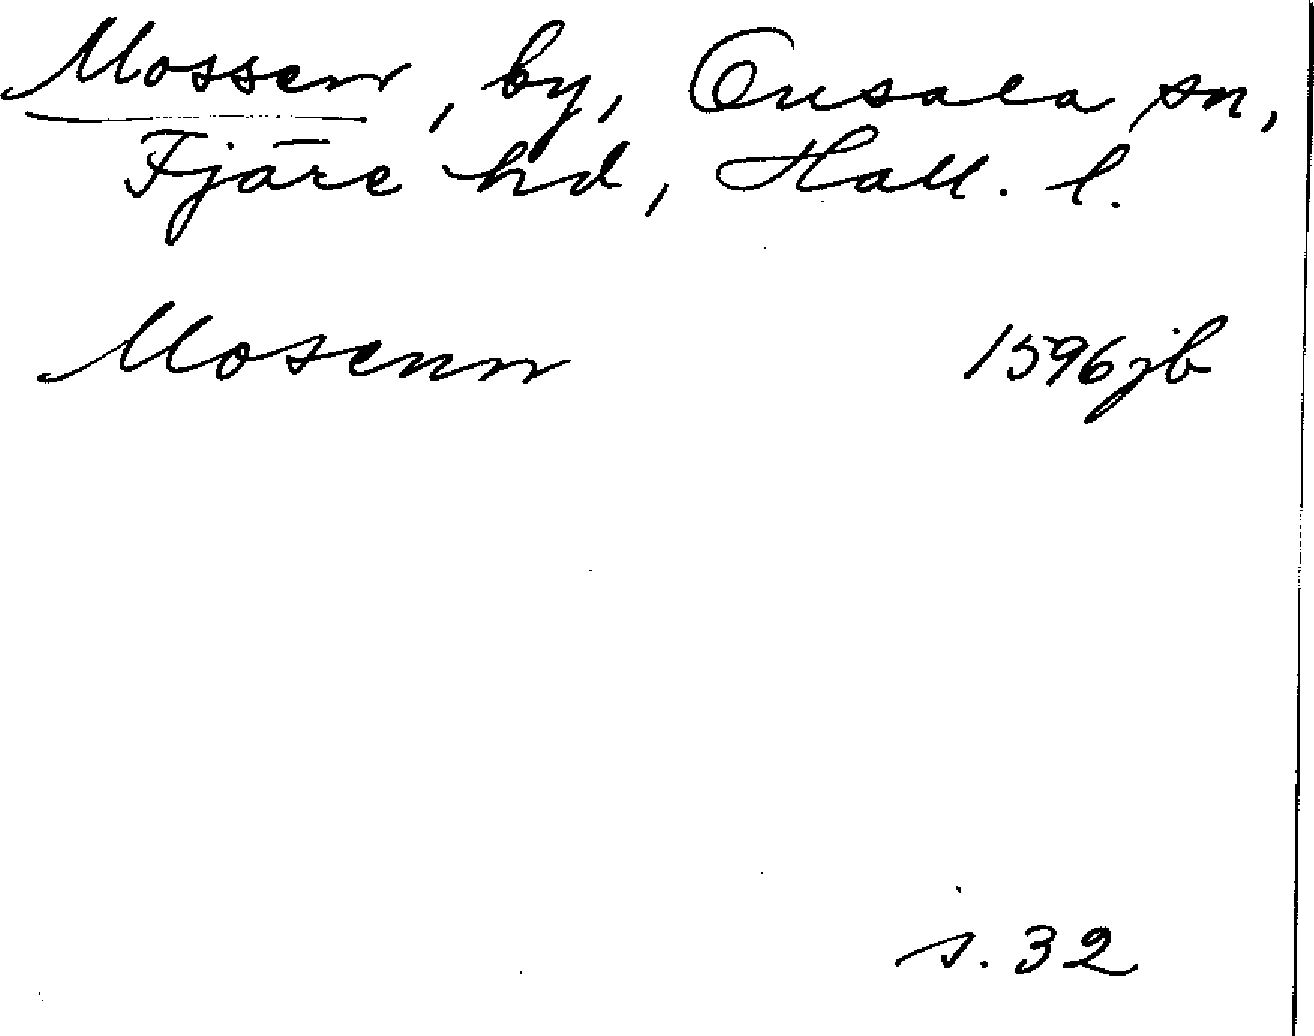 Mossen, by, Onsala sn,
Fjäre hd, Hall. l.
Mosenn 1596 jb
s. 32